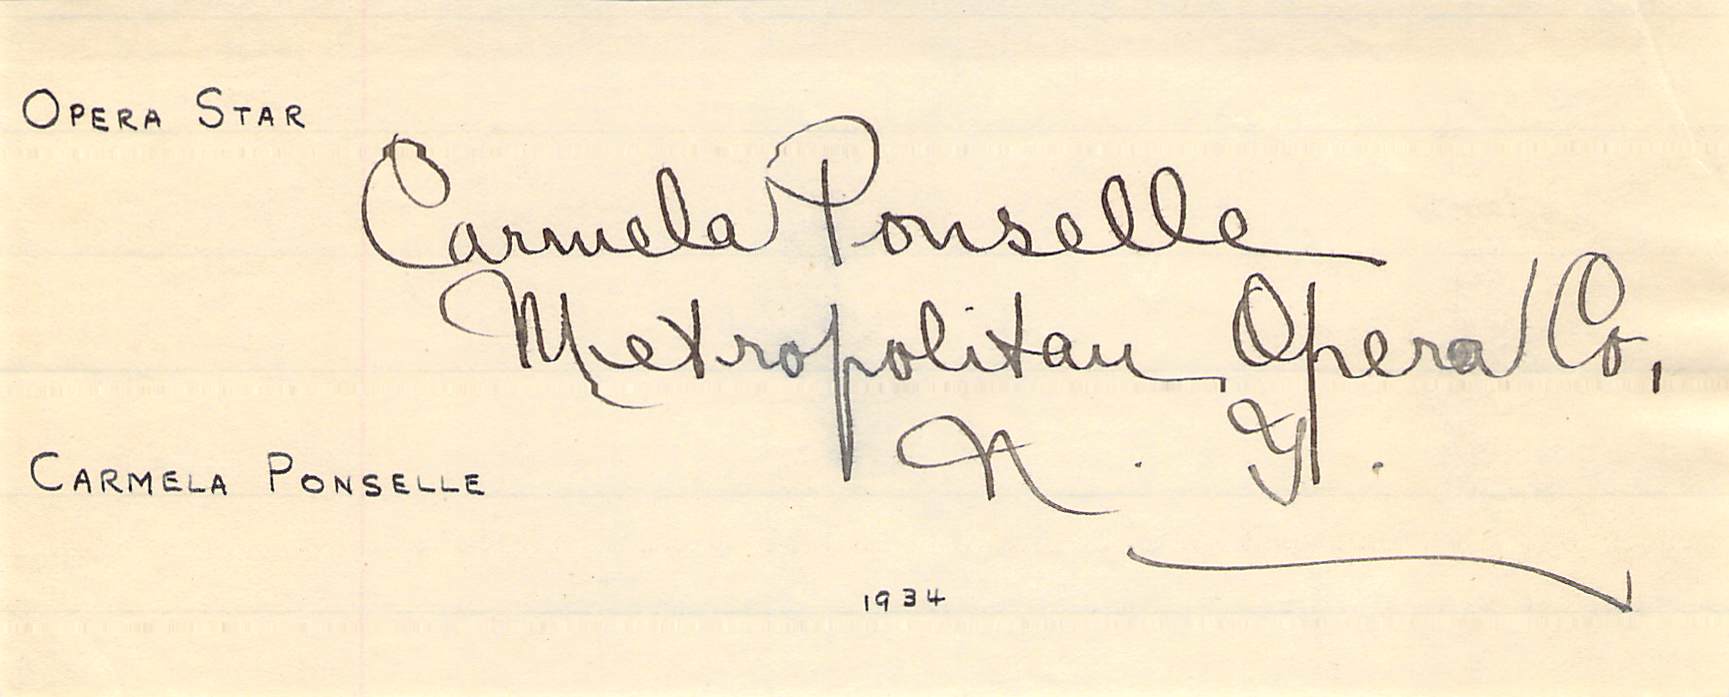 OPERA STAR
Carmela Ponselle
Metropolitan Opera Co.,
N. Y.
CARMELA PONSELLE
1934